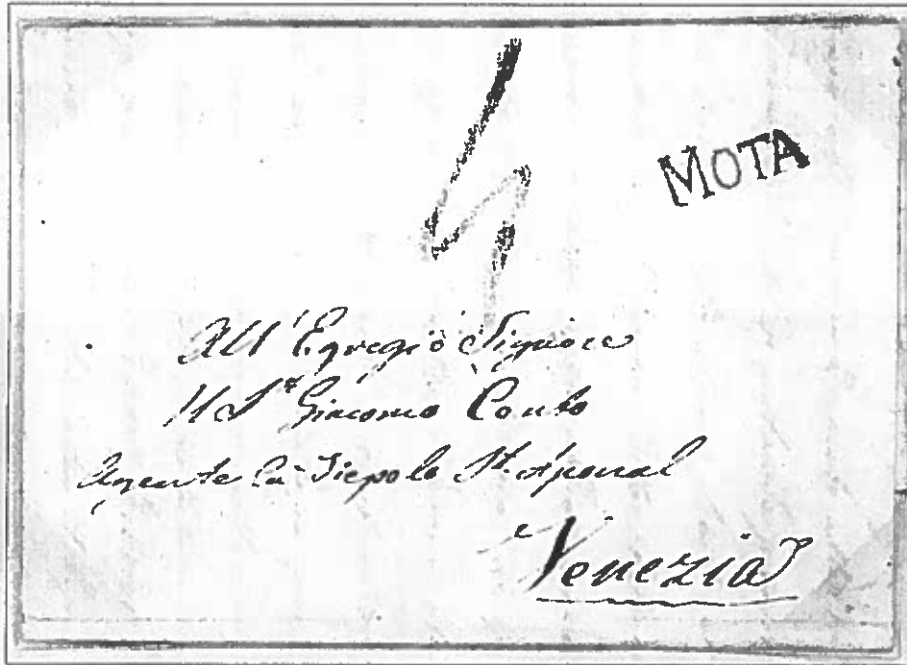 MOTA
All'Egregio Signore
Il Sr Giacomo Conto
Agente Cà Tiepolo St. Aponal
Venezia